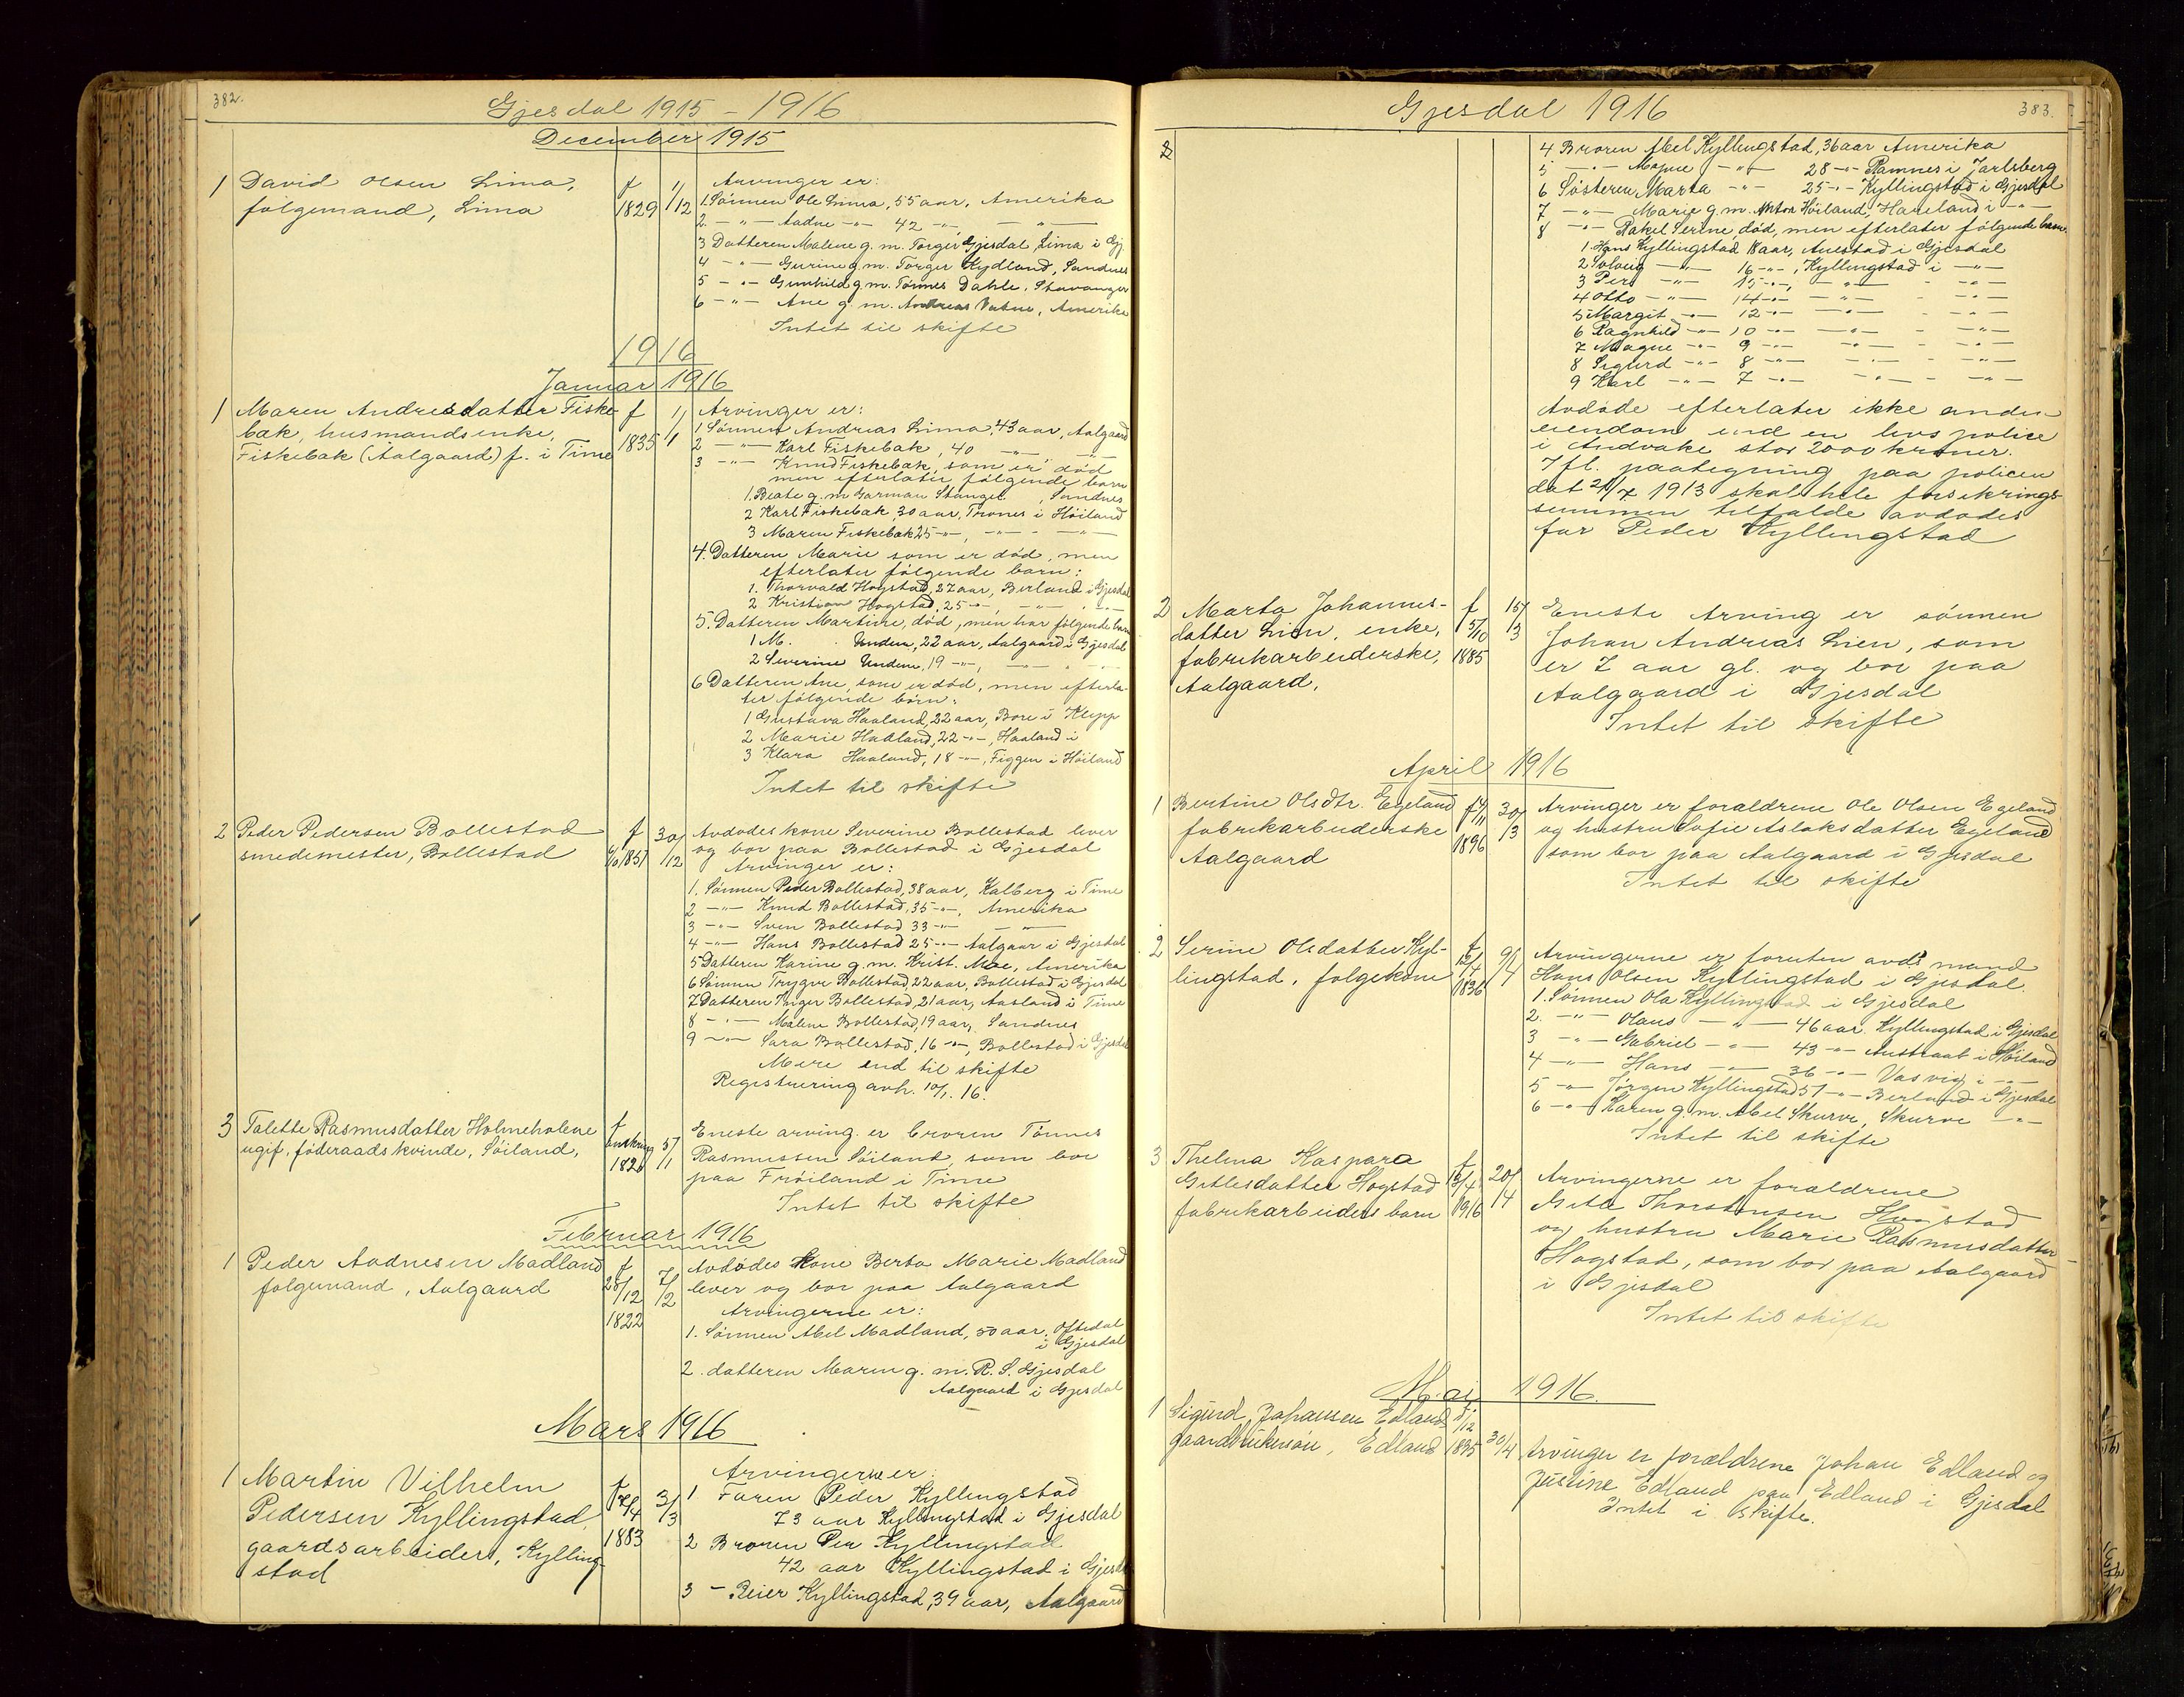 382.
Gjesdal 1915 - 1916
December 1915
1 David Olsen Lima, f 1/ Arvinger er:
folgemand, Lima 1829 12 1. Sønnen Ole Lima, 55 aar, Amerika
2 -"- Aadne -"- 42 -"- -"-
3 Datteren Malene g. m. Torger Gjesdal, Lima i Gj.
4 -"- Gurine g. m. Torger Kydland, Sandnes
5 -"- Gunhild g. m. Tønnes Dahle, Stavanger
6 -"- Ane g. m. Andreas Vatne, Amerika
Intet til skifte
1916
Januar 1916
1 Maren Andreasdatter Fiske- f 1/ Arvinger er:
bæk, husmandsenke, 1835 1 1 Sønnen Andreas Lima, 43 aar, Aalgaard
Fiskebæk (Aalgaard) f. i Time 2 -"- Karl Fiskebæk, 40 -"- -"-
3 -"- Knud Fiskebæk, som er død
men efterlater følgende barn
1. Beate g. m. Garman Stangel, Sandnes
2 Karl Fiskebæk, 30 aar, Trones i Høiland
3 Maren Fiskebæk 25 -"-, -"- - -"-
4. Datteren Marie som er død, men
efterlater følgende barn:
1. Thorvald Hogstad, 27 aar, Berland i Gjesdal
2 Kristian Hogstad, 25 -"-, -"- -"-
5. Datteren Martine, død, men har følgende barn
1 M. Undem, 22 aar, Aalgaard i Gjesdal
2 Severine Undem, 19 -"-, -"- -"-
6 Datteren Ane, som er død, men efterla-
ter følgende børn:
1 Gustava Haaland, 22 aar, Bore i Klepp
2 Marie Haaland, 22 -"-, Haaland i
3 Klara Haaland, 18 -"-, Figgen i Høiland
Intet til skifte
2 Peder Pedersen Bollestad f 30/ Avdødes kone Severine Bollestad lever
smedemester, Bollestad 1851 12 og bor paa Bollestad i Gjesdal
Arvinger er:
1. Sønnen Peder Bollestad, 38 aar, Kalberg i Time
2 -"- Knud Bollestad, 35 -"-, Amerika
3 -"- Sven Bollestad 33 -"- -"-
4 -"- Hans Bollestad 25 -"- Aalgaar i Gjesdal
5 Datteren Karine g. m. Krist. Moe, Amerika
6 Sønnen Trygve Bollestad, 22 aar, Bollestad i Gjesdal
7 Datteren Inger Bollestad, 21 aar, Aasland i Time
8 -"- Malene Bollestad, 19 aar, Sandnes
9 -"- Sara Bollestad, 16 -"-, Bollestad i Gjesdal
Mere end til skifte
Registrering avh. 10/1. 16.
3 Talette Rasmusdatter Holmeholene f 5/ Eneste arving er broren Tønnes
ugif. føderaadskvinde, Søiland, 1826 1 Rasmussen Søiland, som bor
paa Frøiland i Time
Intet til skifte
Februar 1916
1 Peder Aadnesen Madland f 7/ Avdødes kone Berta Marie Madland
folgemand, Aalgaard 28/12 2 lever og bor paa Aalgaard
1822 Arvingerne er:
1. Sønnen Abel Madland, 50 aar, Oftedal
i Gjesdal
2. datteren Maren g. m. R. S. Gjesdal
Aalgaard i Gjesdal
Mars 1916
1 Martin Vilhelm Arvingerne er:
Pedersen Kyllingstad, f 3/3 1 Faren Peder Kyllingstad
1883 73 aar Kyllingstad i Gjesdal
gaardsarbeider, Kylling- 2 Broren Per Kyllingstad
stad 42 aar Kyllingstad i Gjesdal
3 - Reier Kyllingstad, 39 aar, Aalgaard
Gjesdal 1916
383.
4 Broren Abel Kyllingstad, 36 aar Amerika
5 -"- Magne -"- 28 -"- Ramnes i Jarlsberg
6 Søsteren Marta -"- 25 -"- Kyllingstad i Gjesdal
7 -"- Marie g. m. Anton Høiland, Haaland i -"-
8 -"- Rakel Serine død, men efterlater følgende barn
1. Hans Kyllingstad 18 aar, Auestad i Gjesdal
2 Solveig -"- 16 -"-, Kyllingstad i -"-
3 Per -"- 15 -"-, -"- - -"-
4 Otto -"- 14 -"- -"- - -"-
5 Margit -"- 12 -"- -"- - -"-
6 Ragnhild -"- 10 -"- -"- - -"-
7 Magne -"- 9 -"- -"- - -"-
8 Sigurd -"- 8 -"- -"- - -"-
9 Karl -"- 7 -"- -"- - -"-
Avdøde efterlater ikke anden
eiendom end en livspolice
i Andvake stor 2000 kroner.
Ifl. paategning paa policen
dat 21/7 1913 skal hele forsikrings-
summen tilfalde avdødes
far Peder Kyllingstad
2 Marta Johannes- f 15/ Eneste Arving er sønnen
datter Lien, enke, 5/10 3 Johan Andreas Lien, som
fabrikarbeiderske, 1885 er 7 aar gl. og bor paa
Aalgaard. Aalgaard i Gjesdal
Intet til skifte
April 1916
1 Bertine Olsdtr. Egeland f 30/ Arvinger er foraldrene Ole Olsen Egeland
fabrikarbeiderske 1896 3 og hustru Sofie Aslaksdatter Egeland
Aalgaard som bor paa Aalgaard i Gjesdal
Intet til skifte
2 Serine Olsdatter Kyl- f 9/ Arvingerne er foruten avds mand
lingstad, folgekone 1836 4 Hans Olsen Kyllingstad i Gjesdal.
1. Sønnen Ola Kyllingstad i Gjesdal
2. -"- Olaus -"- 46 aar. Kyllingstad i Gjesdal
3 -"- Gabriel -"- 43 -"- Austraat i Høiland
4 -"- Hans -"- 36 -"- Vasvig i -"-
5 -"- Jørgen Kyllingstad 51 -"- Berland i Gjesdal
6 -"- Karen g. m. Abel Skurve, Skurve -"-
Intet til skifte
3 Thelma Kaspara f 20/ Arvingerne er foraldrene
Gitlesdatter Hogstad 4 Gitle Thorstensen Hogstad
fabrikarbeiders barn 1916 og hustru Marie Rasmusdatter
Hogstad, som bor paa Aalgaard
i Gjesdal
Intet til skifte
Mai 1916.
1 Sigurd Johansen Edland
gaardbrukersøn, Edland 1895 30/4 Arvinger er forældrene Johan Edland og
Justine Edland paa Edland i Gjesdal
Intet i skifte.